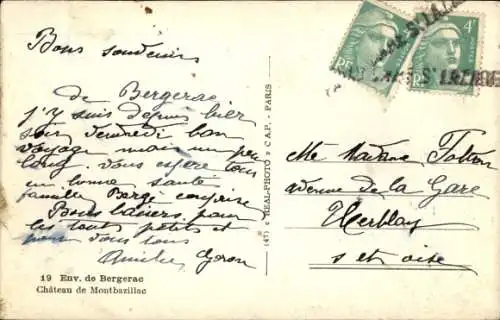 Bons souvenirs
de Bergerac
j'y suis depuis hier
soir vendredi bon
voyage mais un peu
long. vous espère tous
en bonne santé
famille Bergé comprise
Bons baisers pour
les touts petits et
pour vous tous
19 Env. de Bergerac
Château de Montbazillac
(47) REAL-PHOTO C A P. - PARIS
RF
4F
POSTES
RF
Madame
avenue de la Gare
Herblay
s et oise